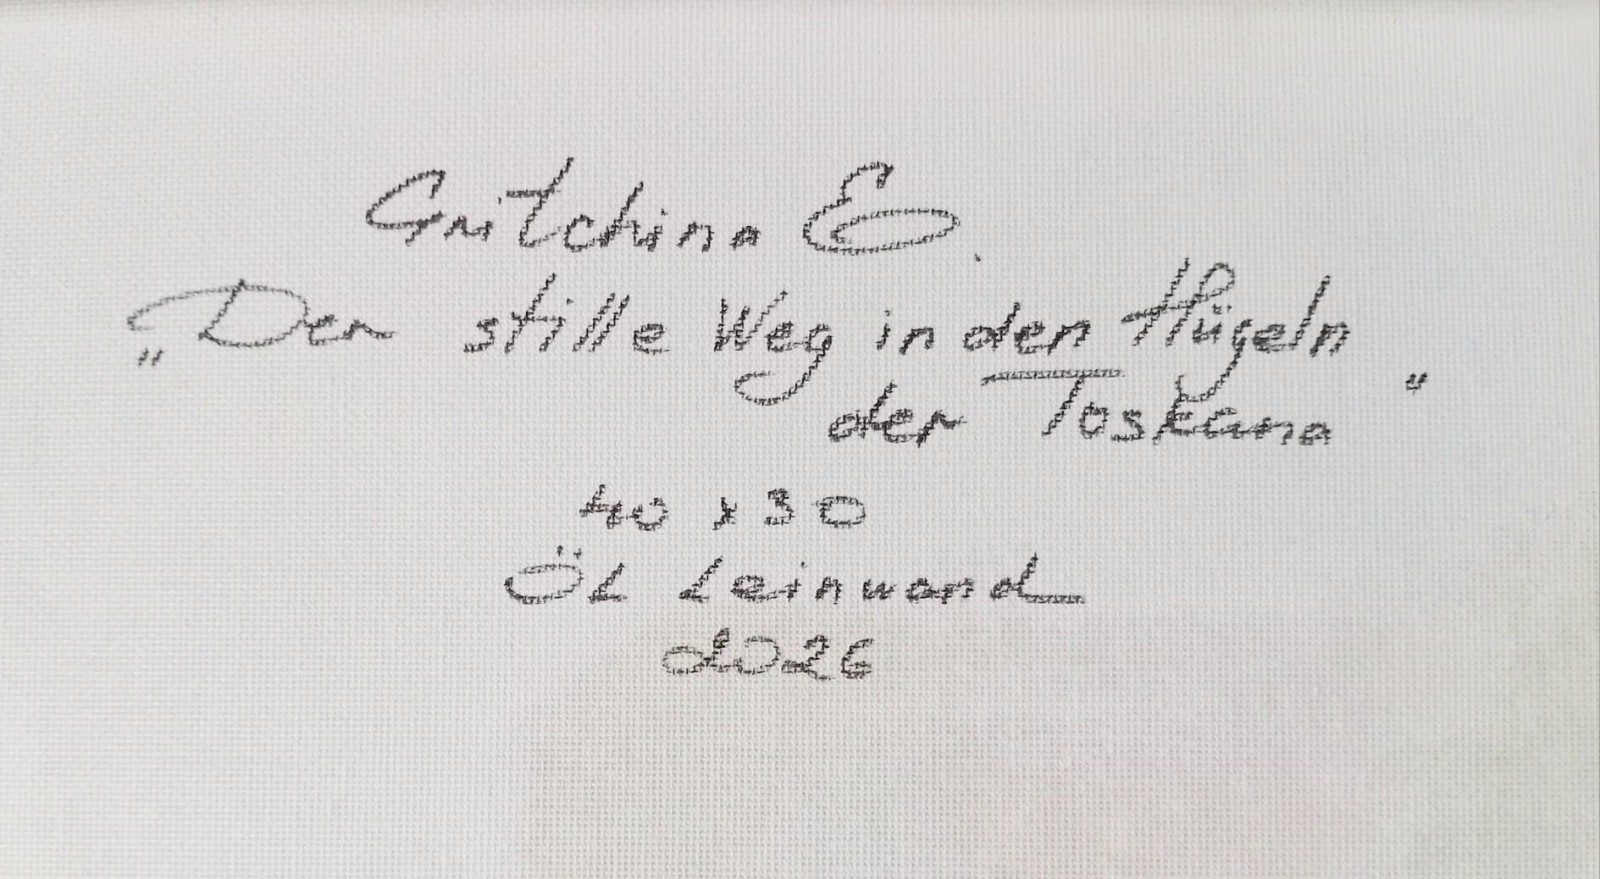 Gritchina E.
„Der stille Weg in den Hügeln
der Toskana"
40 x 30
Öl Leinwand
2026